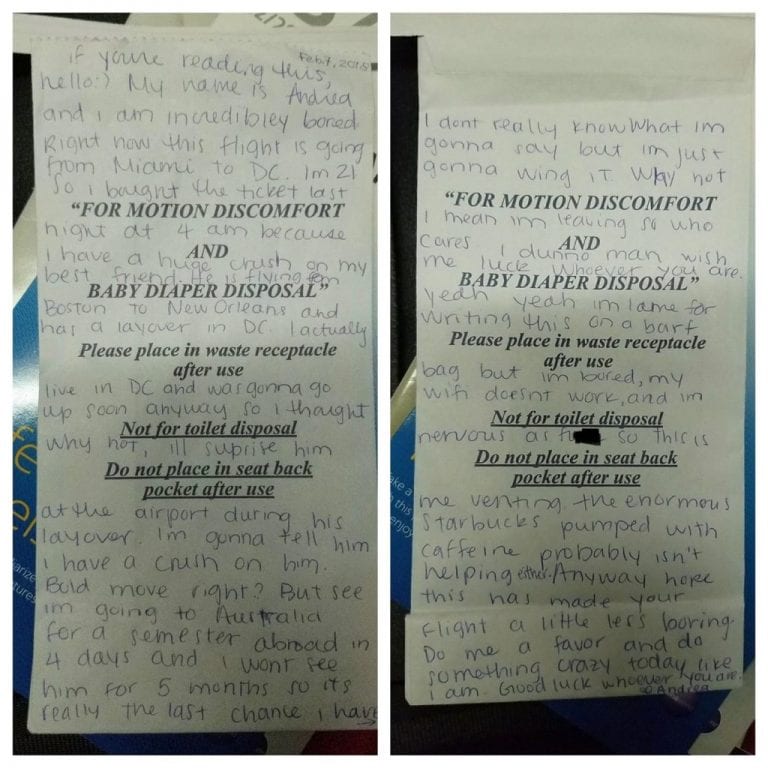 Feb 7, 2015
if you're reading this,
hello:) My name is Andrea
and i am incredibley bored
Right now this flight is going
from Miami to DC. Im 21
So i baught the ticket last
"FOR MOTION DISCOMFORT
night at 4 am because
AND
i have a huge crush on my
best friend. He is flying from
BABY DIAPER DISPOSAL"
Boston to New Orleans and
has a layover in DC. I actually
Please place in waste receptacle
after use
live in DC and was gonna go
up soon anyway so i thought
Not for toilet disposal
why not, ill suprise him
Do not place in seat back
pocket after use
at the airport during his
layover. Im gonna tell him
i have a crush on him.
Bold move right? But see
im going to Australia
for a semester abroad in
4 days and i wont see
him for 5 months so its
really the last chance i have
I dont really know What im
gonna say but im just
gonna wing it. Why not
"FOR MOTION DISCOMFORT
I mean im leaving so who
cares I dunno man wish
AND
me luck whoever you are.
BABY DIAPER DISPOSAL"
yeah yeah im lame for
writing this on a barf
Please place in waste receptacle
after use
bag but im bored, my
wifi doesnt work, and im
Not for toilet disposal
nervous as so this is
Do not place in seat back
pocket after use
me venting. the enormous
Starbucks pumped with
caffeine probably isn't
helping either. Anyway hope
this has made your
flight a little less boring.
Do me a favor and do
something crazy today like
i am. Good luck whoever you are.
Andrea